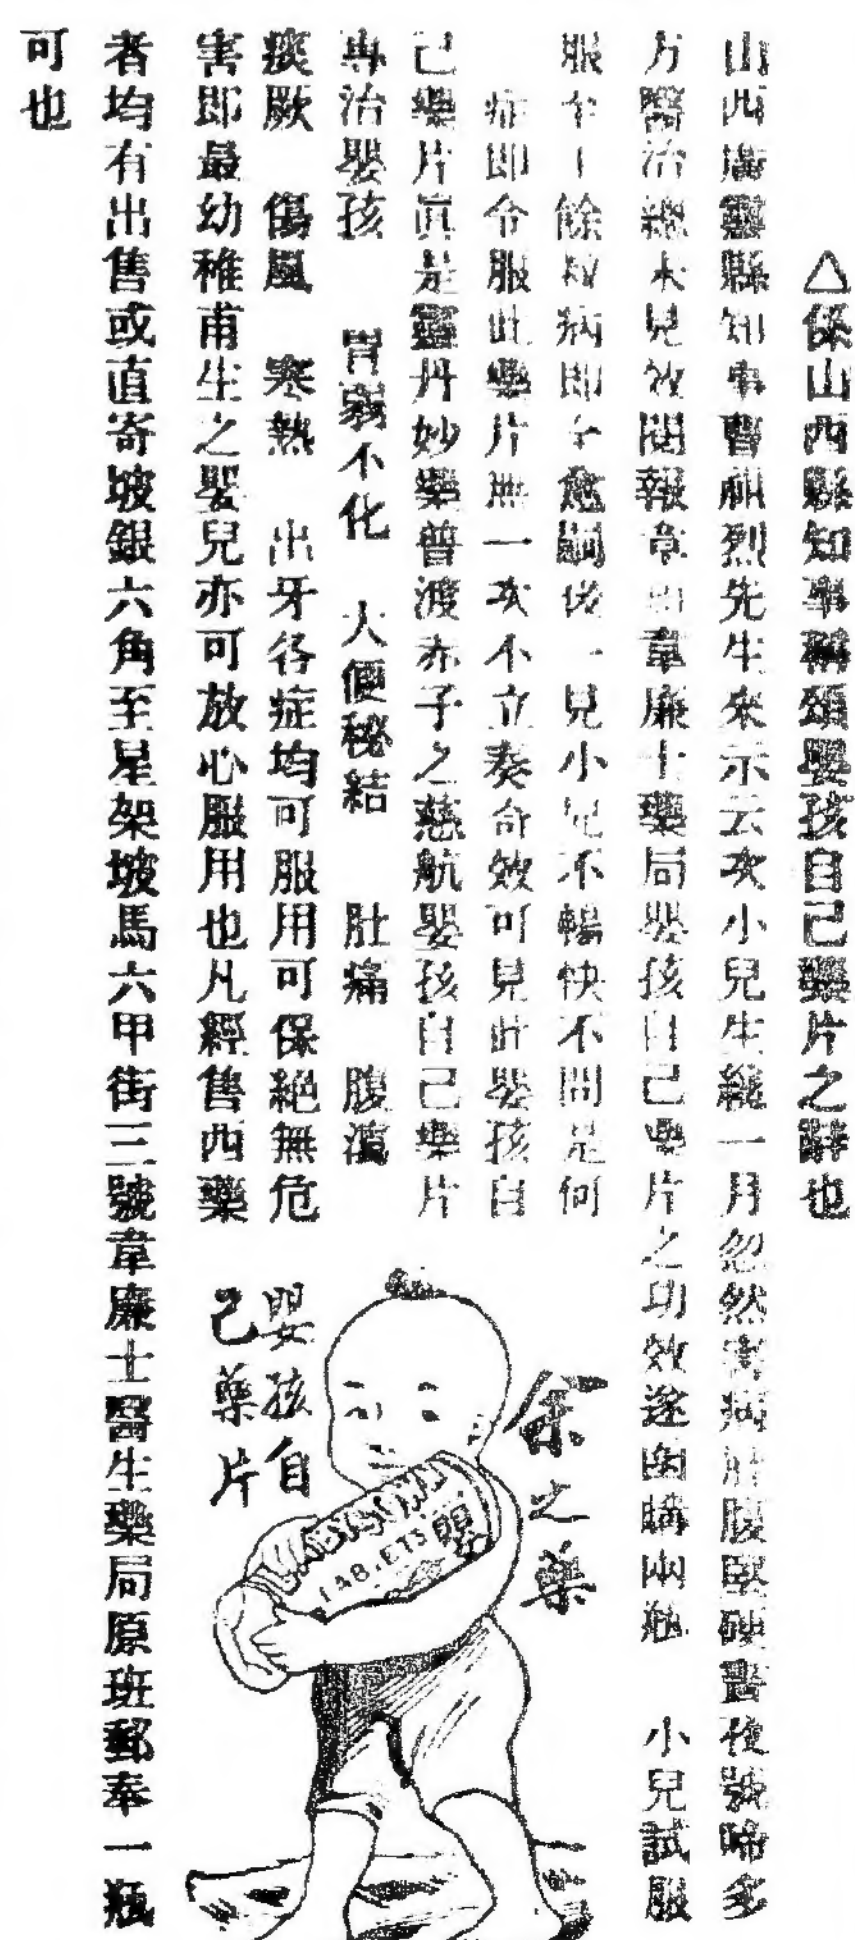 △係山西縣知事稱頌嬰孩自己藥片之辭也
山西廣靈縣知事曹祖烈先生來示云次小兒生纔一月忽然害病肚腹堅硬晝夜號啼多
方醫治總未見效閱報章知韋廉士藥局嬰孩自己藥片之功效遂函購兩瓶 小兒試服
服至十餘粒病即全愈嗣後一見小兒不暢快不問是何
症即令服此藥片無一次不立奏奇效可見此嬰孩自
己藥片真是靈丹妙藥普渡赤子之慈航嬰孩自己藥片
專治嬰孩 胃弱不化 大便秘結 肚痛 腹瀉
痰厥 傷風 寒熱 出牙各症均可服用可保絕無危
害即最幼稚甫生之嬰兒亦可放心服用也凡經售西藥
者均有出售或直寄坡銀六角至星架坡馬六甲街三號韋廉士醫生藥局原班郵奉一瓶
可也
余之藥
嬰孩自
己藥片
BABY'S OWN
TABLETS
嬰